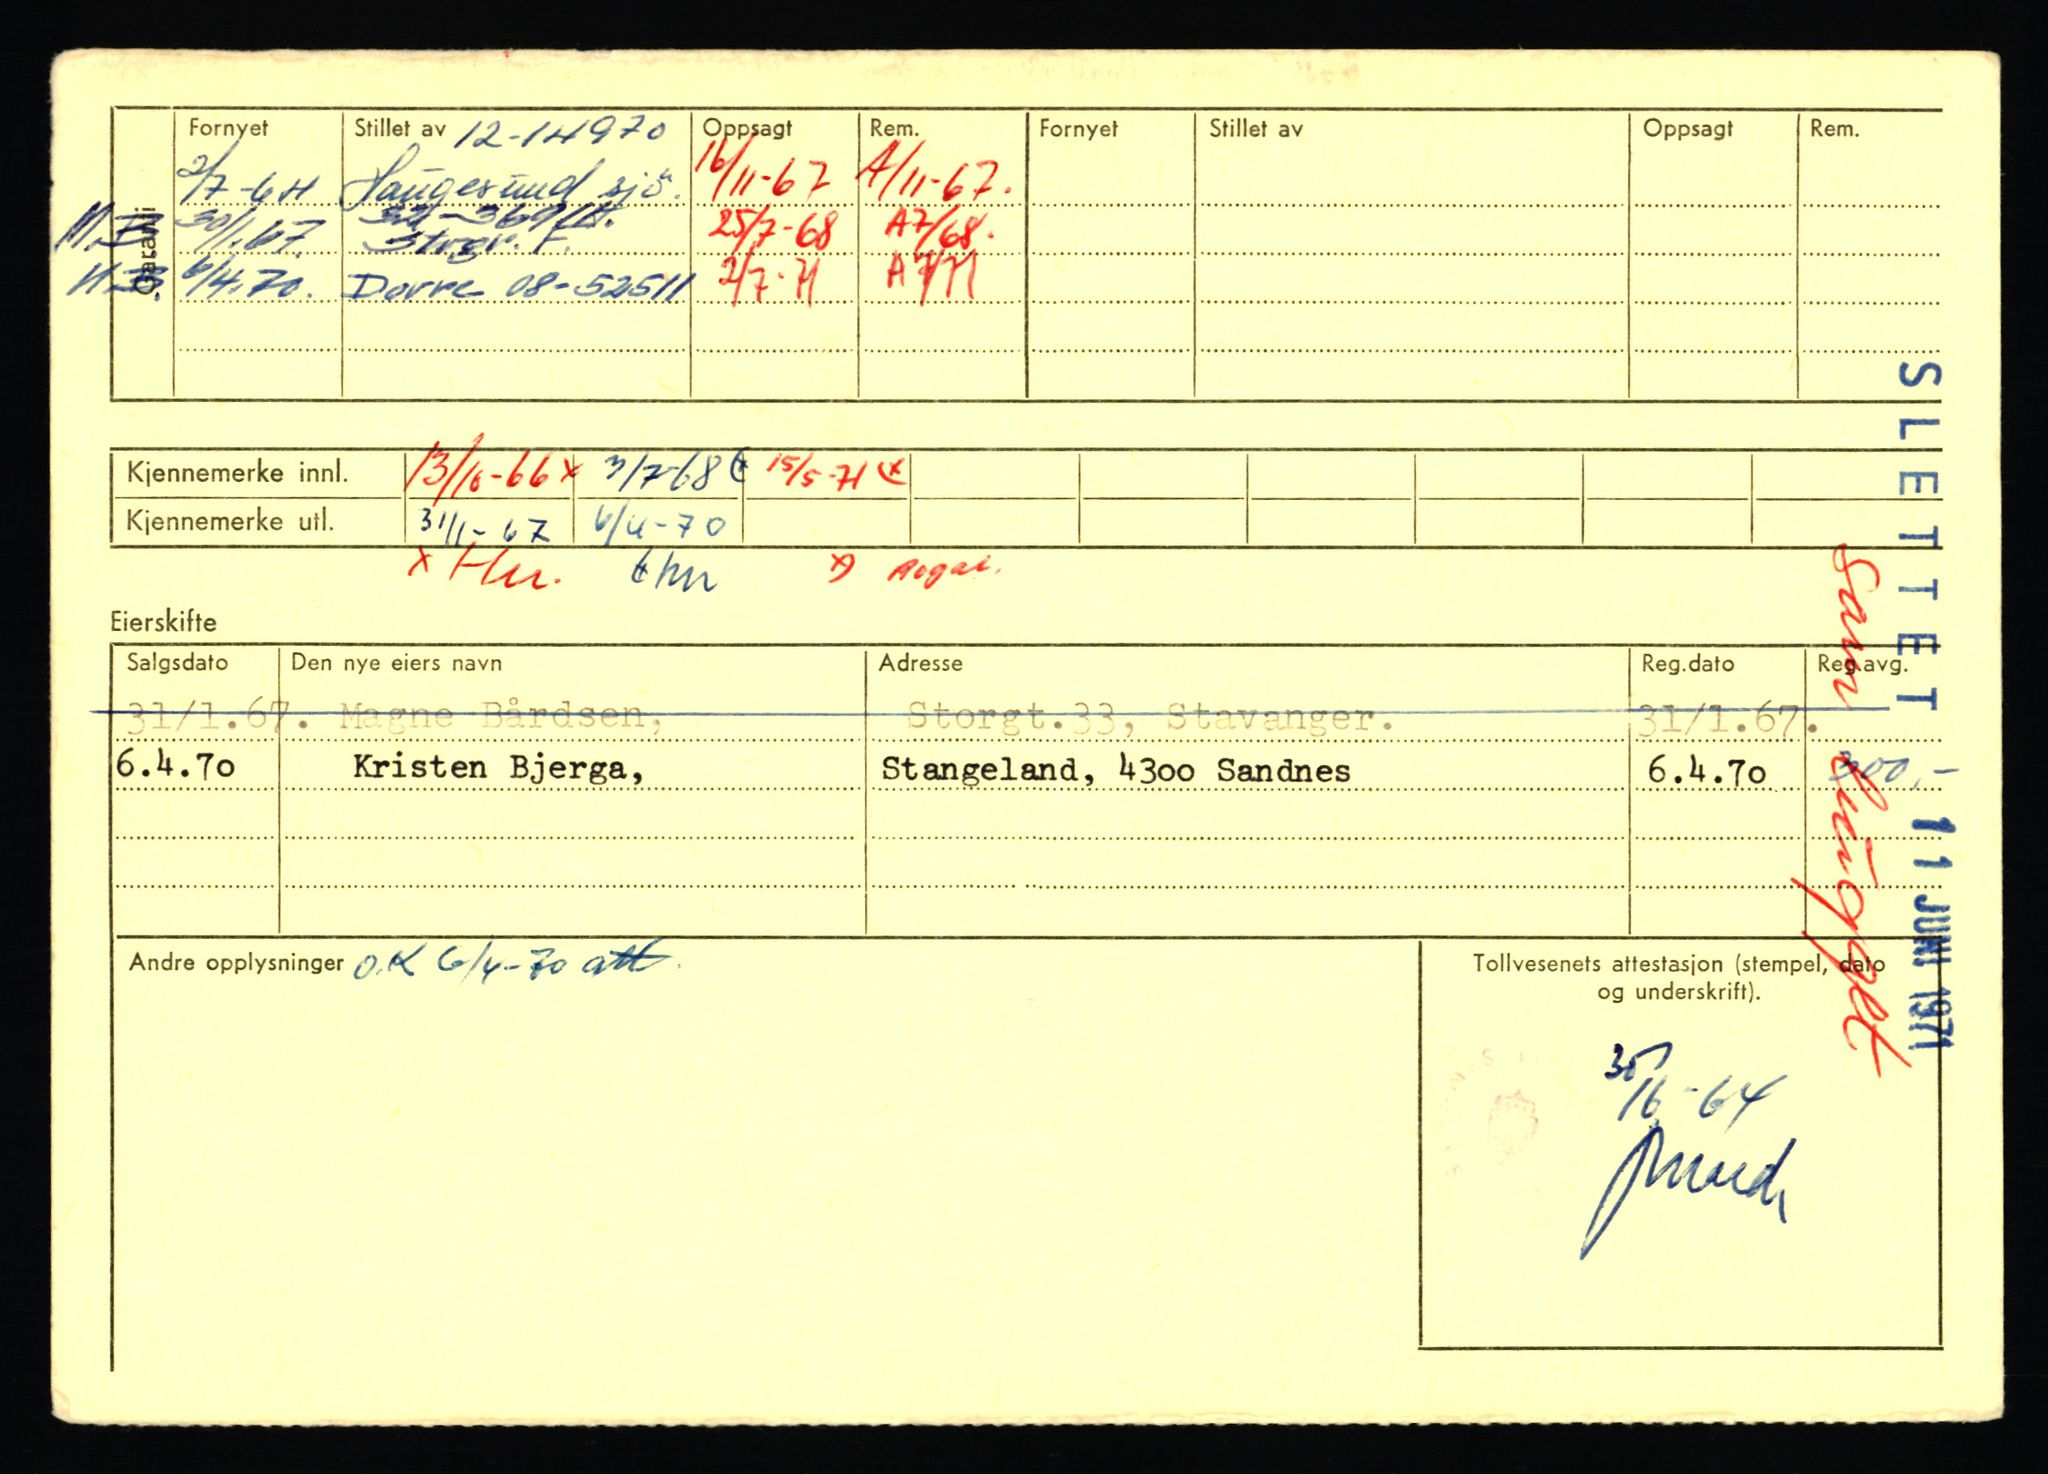 Garanti
Fornyet Stillet av 12-14970 Oppsagt Rem. Fornyet Stillet av Oppsagt Rem.
2/7-64 Haugesund sjö. 16/11-67 A/11-67.
30/1.67. Strgr. F. 25/7-68 A7/68.
6/4.70. Dovre 08-52511 2/7-71 A7/71
Kjennemerke innl. 13/10-66 x 3/7-68 15/5-71
Kjennemerke utl. 31/1-67 6/4-70
x Hm. Hm Rogal.
Eierskifte
Salgsdato Den nye eiers navn Adresse Reg.dato Reg.avg.
31/1.67. Magne Bårdsen, Storgt.33, Stavanger. 31/1.67.
6.4.70 Kristen Bjerga, Stangeland, 4300 Sandnes 6.4.70 300,-
Andre opplysninger O.K 6/4-70 att.
Tollvesenets attestasjon (stempel, dato
og underskrift).
30/6-64
SLETTET 11 JUNI 1971